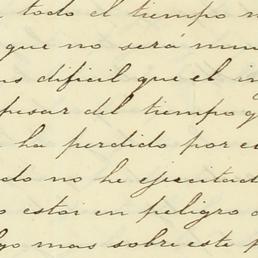 todo el tiempo
que no será
dificil que el
pesar del tiempo
ha perdido por
no he ejecitad
estoi en peligro
mas sobre este